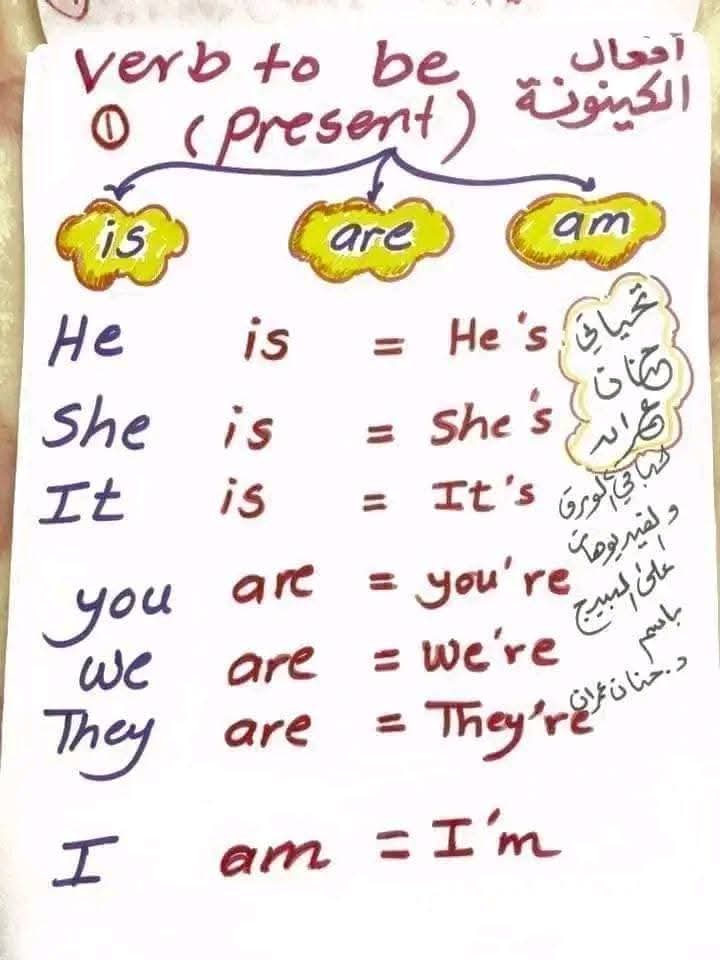 verb to be أفعال
① (present) الكينونة
is are am
He is = He's
She is = She's
It is = It's
you are = you're
we are = we're
They are = They're
I am = I'm
تحياتي
حنان
عمران
باقي الورق
والفيديوهات
على البيج
باسم
د. حنان عمران